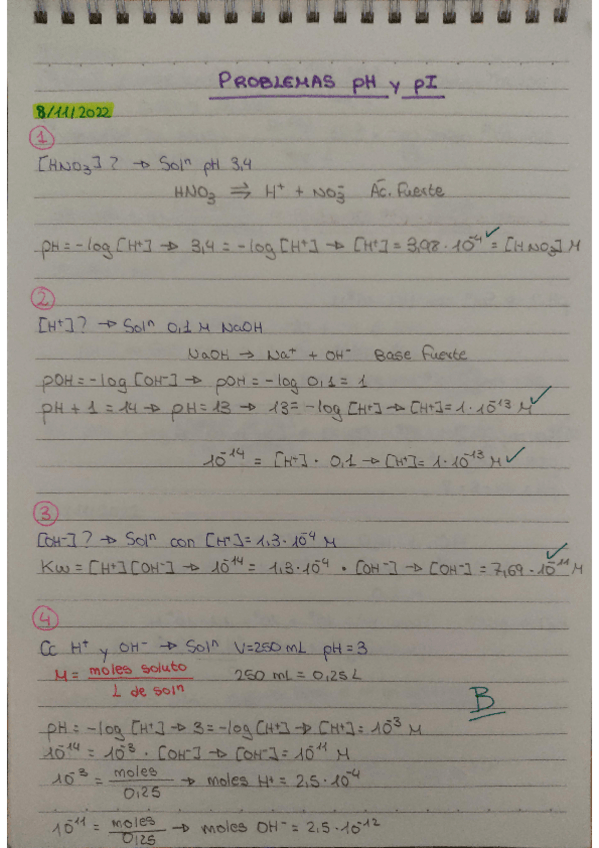 PROBLEMAS pH y pI
8/11/2022
1
[HNO₃]? → Solⁿ pH 3,4
HNO₃ ⇌ H⁺ + NO₃⁻ Ac. Fuerte
pH = -log [H⁺] → 3,4 = -log [H⁺] → [H⁺] = 3,98 · 10⁻⁴ = [HNO₃] M
2
[H⁺]? → Solⁿ 0,1 M NaOH
NaOH → Na⁺ + OH⁻ Base Fuerte
pOH = -log [OH⁻] → pOH = -log 0,1 = 1
pH + 1 = 14 → pH = 13 → 13 = -log [H⁺] → [H⁺] = 1 · 10⁻¹³ M
10⁻¹⁴ = [H⁺] · 0,1 → [H⁺] = 1 · 10⁻¹³ M
3
[OH⁻]? → Solⁿ con [H⁺] = 1,3 · 10⁻⁴ M
Kw = [H⁺][OH⁻] → 10⁻¹⁴ = 1,3 · 10⁻⁴ · [OH⁻] → [OH⁻] = 7,69 · 10⁻¹¹ M
4
Cc H⁺ y OH⁻ → Solⁿ V = 250 mL pH = 3
M = moles soluto / L de solⁿ 250 mL = 0,25 L
B
pH = -log [H⁺] → 3 = -log [H⁺] → [H⁺] = 10⁻³ M
10⁻¹⁴ = 10⁻³ · [OH⁻] → [OH⁻] = 10⁻¹¹ M
10⁻³ = moles / 0,25 → moles H⁺ = 2,5 · 10⁻⁴
10⁻¹¹ = moles / 0,25 → moles OH⁻ = 2,5 · 10⁻¹²